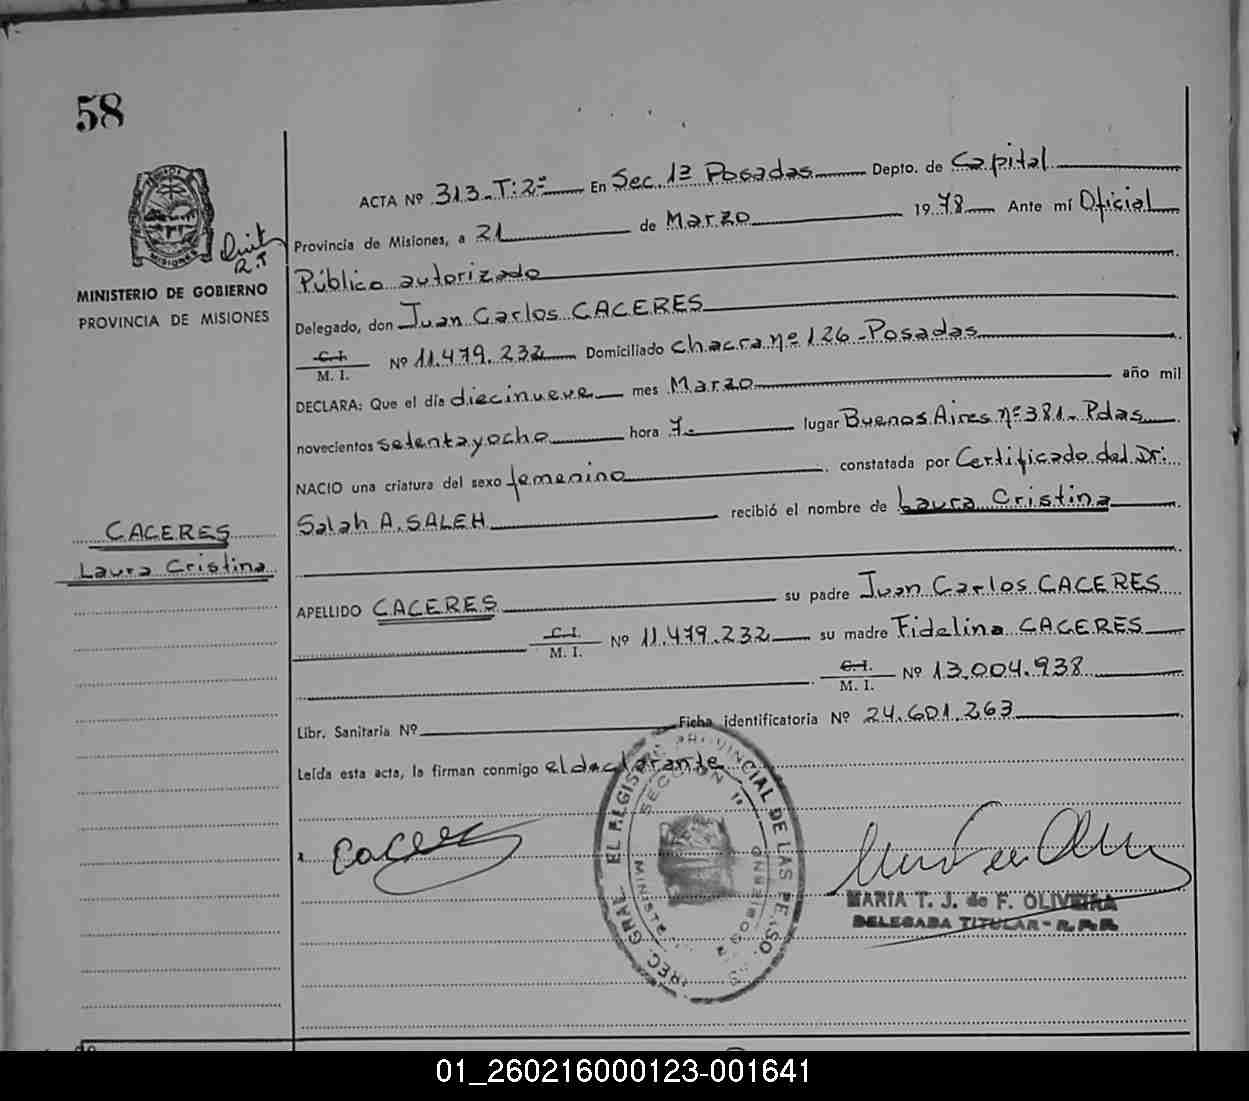 58
ACTA Nº 313-T:2º En Sec. 1ª Posadas Depto. de Capital
Provincia de Misiones, a 21 de Marzo 1978 Ante mí Oficial
Público autorizado
Delegado, don Juan Carlos CACERES
C.I. M. I. Nº 11.479.232 Domiciliado chacra nº 126 - Posadas
DECLARA: Que el día diecinueve mes Marzo año mil
novecientos setenta y ocho hora 7. lugar Buenos Aires nº 381 - Pdas
NACIO una criatura del sexo femenino, constatada por Certificado del Dr:
Salah A. SALEH recibió el nombre de Laura Cristina
APELLIDO CACERES su padre Juan Carlos CACERES
C.I. M. I. Nº 11.479.232 su madre Fidelina CACERES
C.I. M. I. Nº 13.004.938
Libr. Sanitaria Nº Ficha identificatoria Nº 24.601.263
Leída esta acta, la firman conmigo el declarante
MISIONES
MINISTERIO DE GOBIERNO
PROVINCIA DE MISIONES
CACERES
Laura Cristina
Caceres
PROVINCIAL DE LAS
SECCION 1ª
MARIA T. J. de F. OLIVEIRA
DELEGADA TITULAR - R.P.P.
01_260216000123-001641